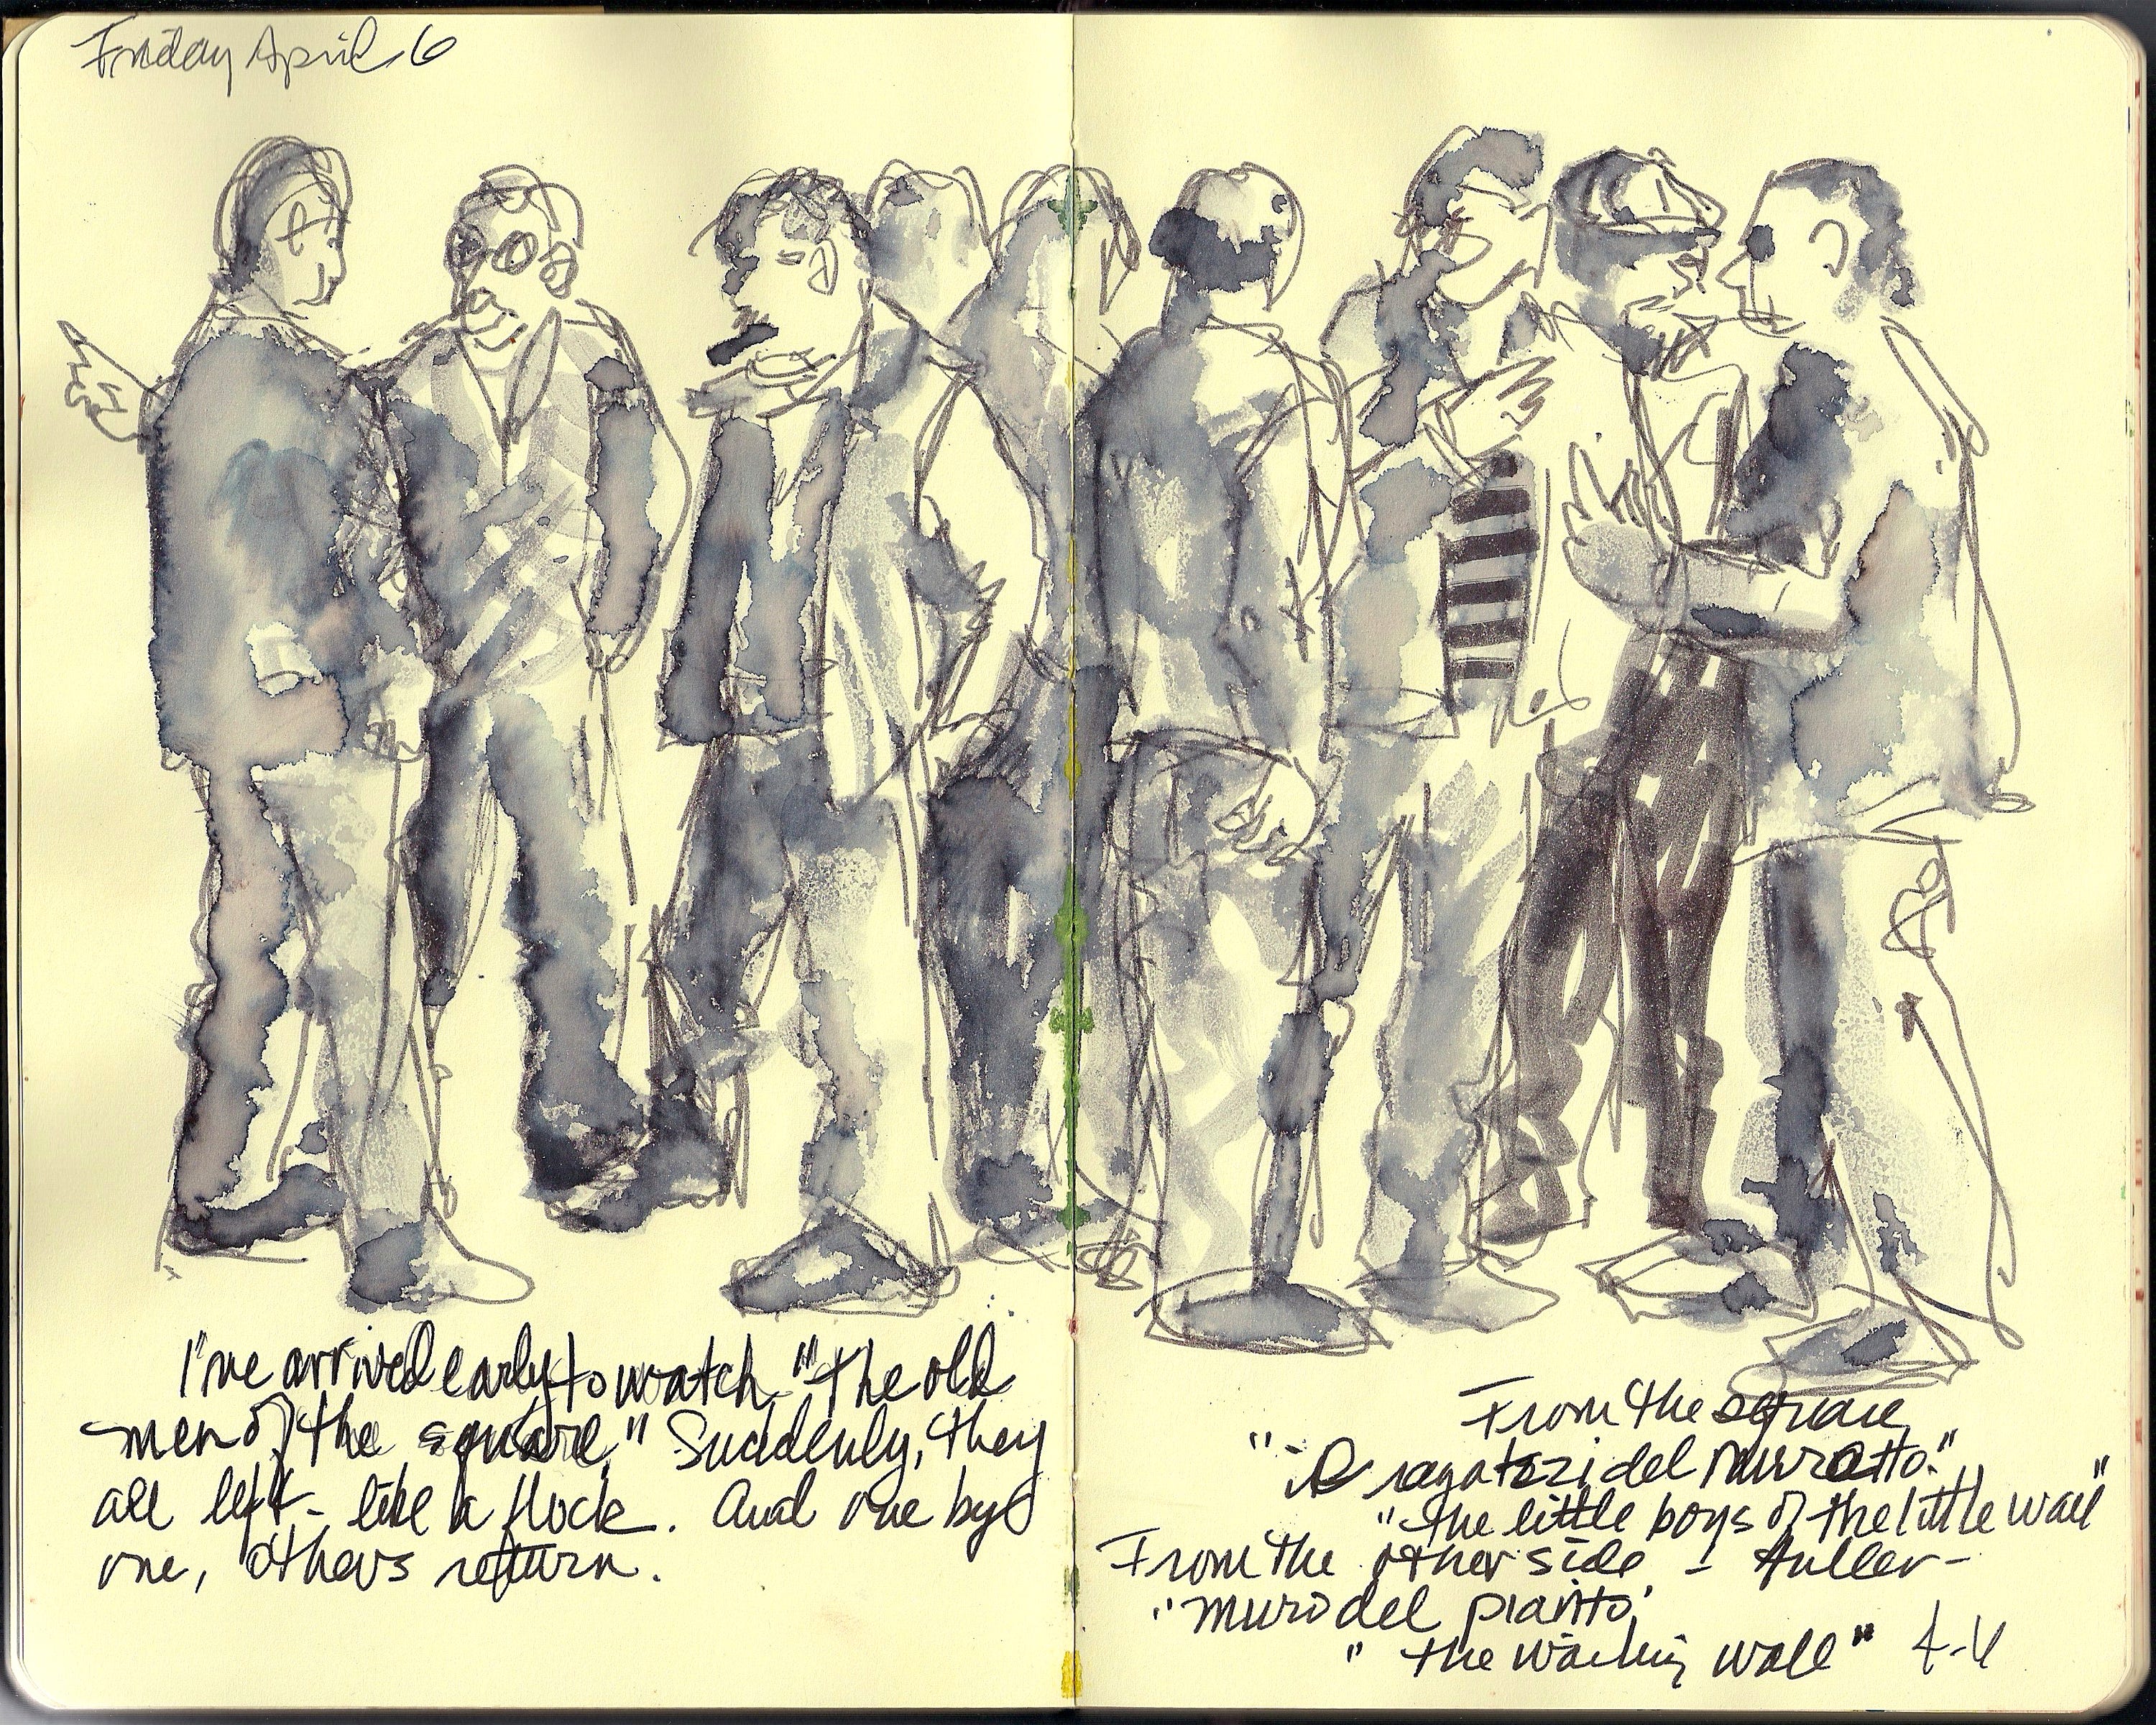 Friday April 6
I've arrived early to watch "the old
men of the square." Suddenly, they
all left - like a flock. And one by
one, others return.
From the square
"i ragazzi del muretto."
"the little boys of the little wall"
From the other side -
"muro del pianto"
"the wailing wall"